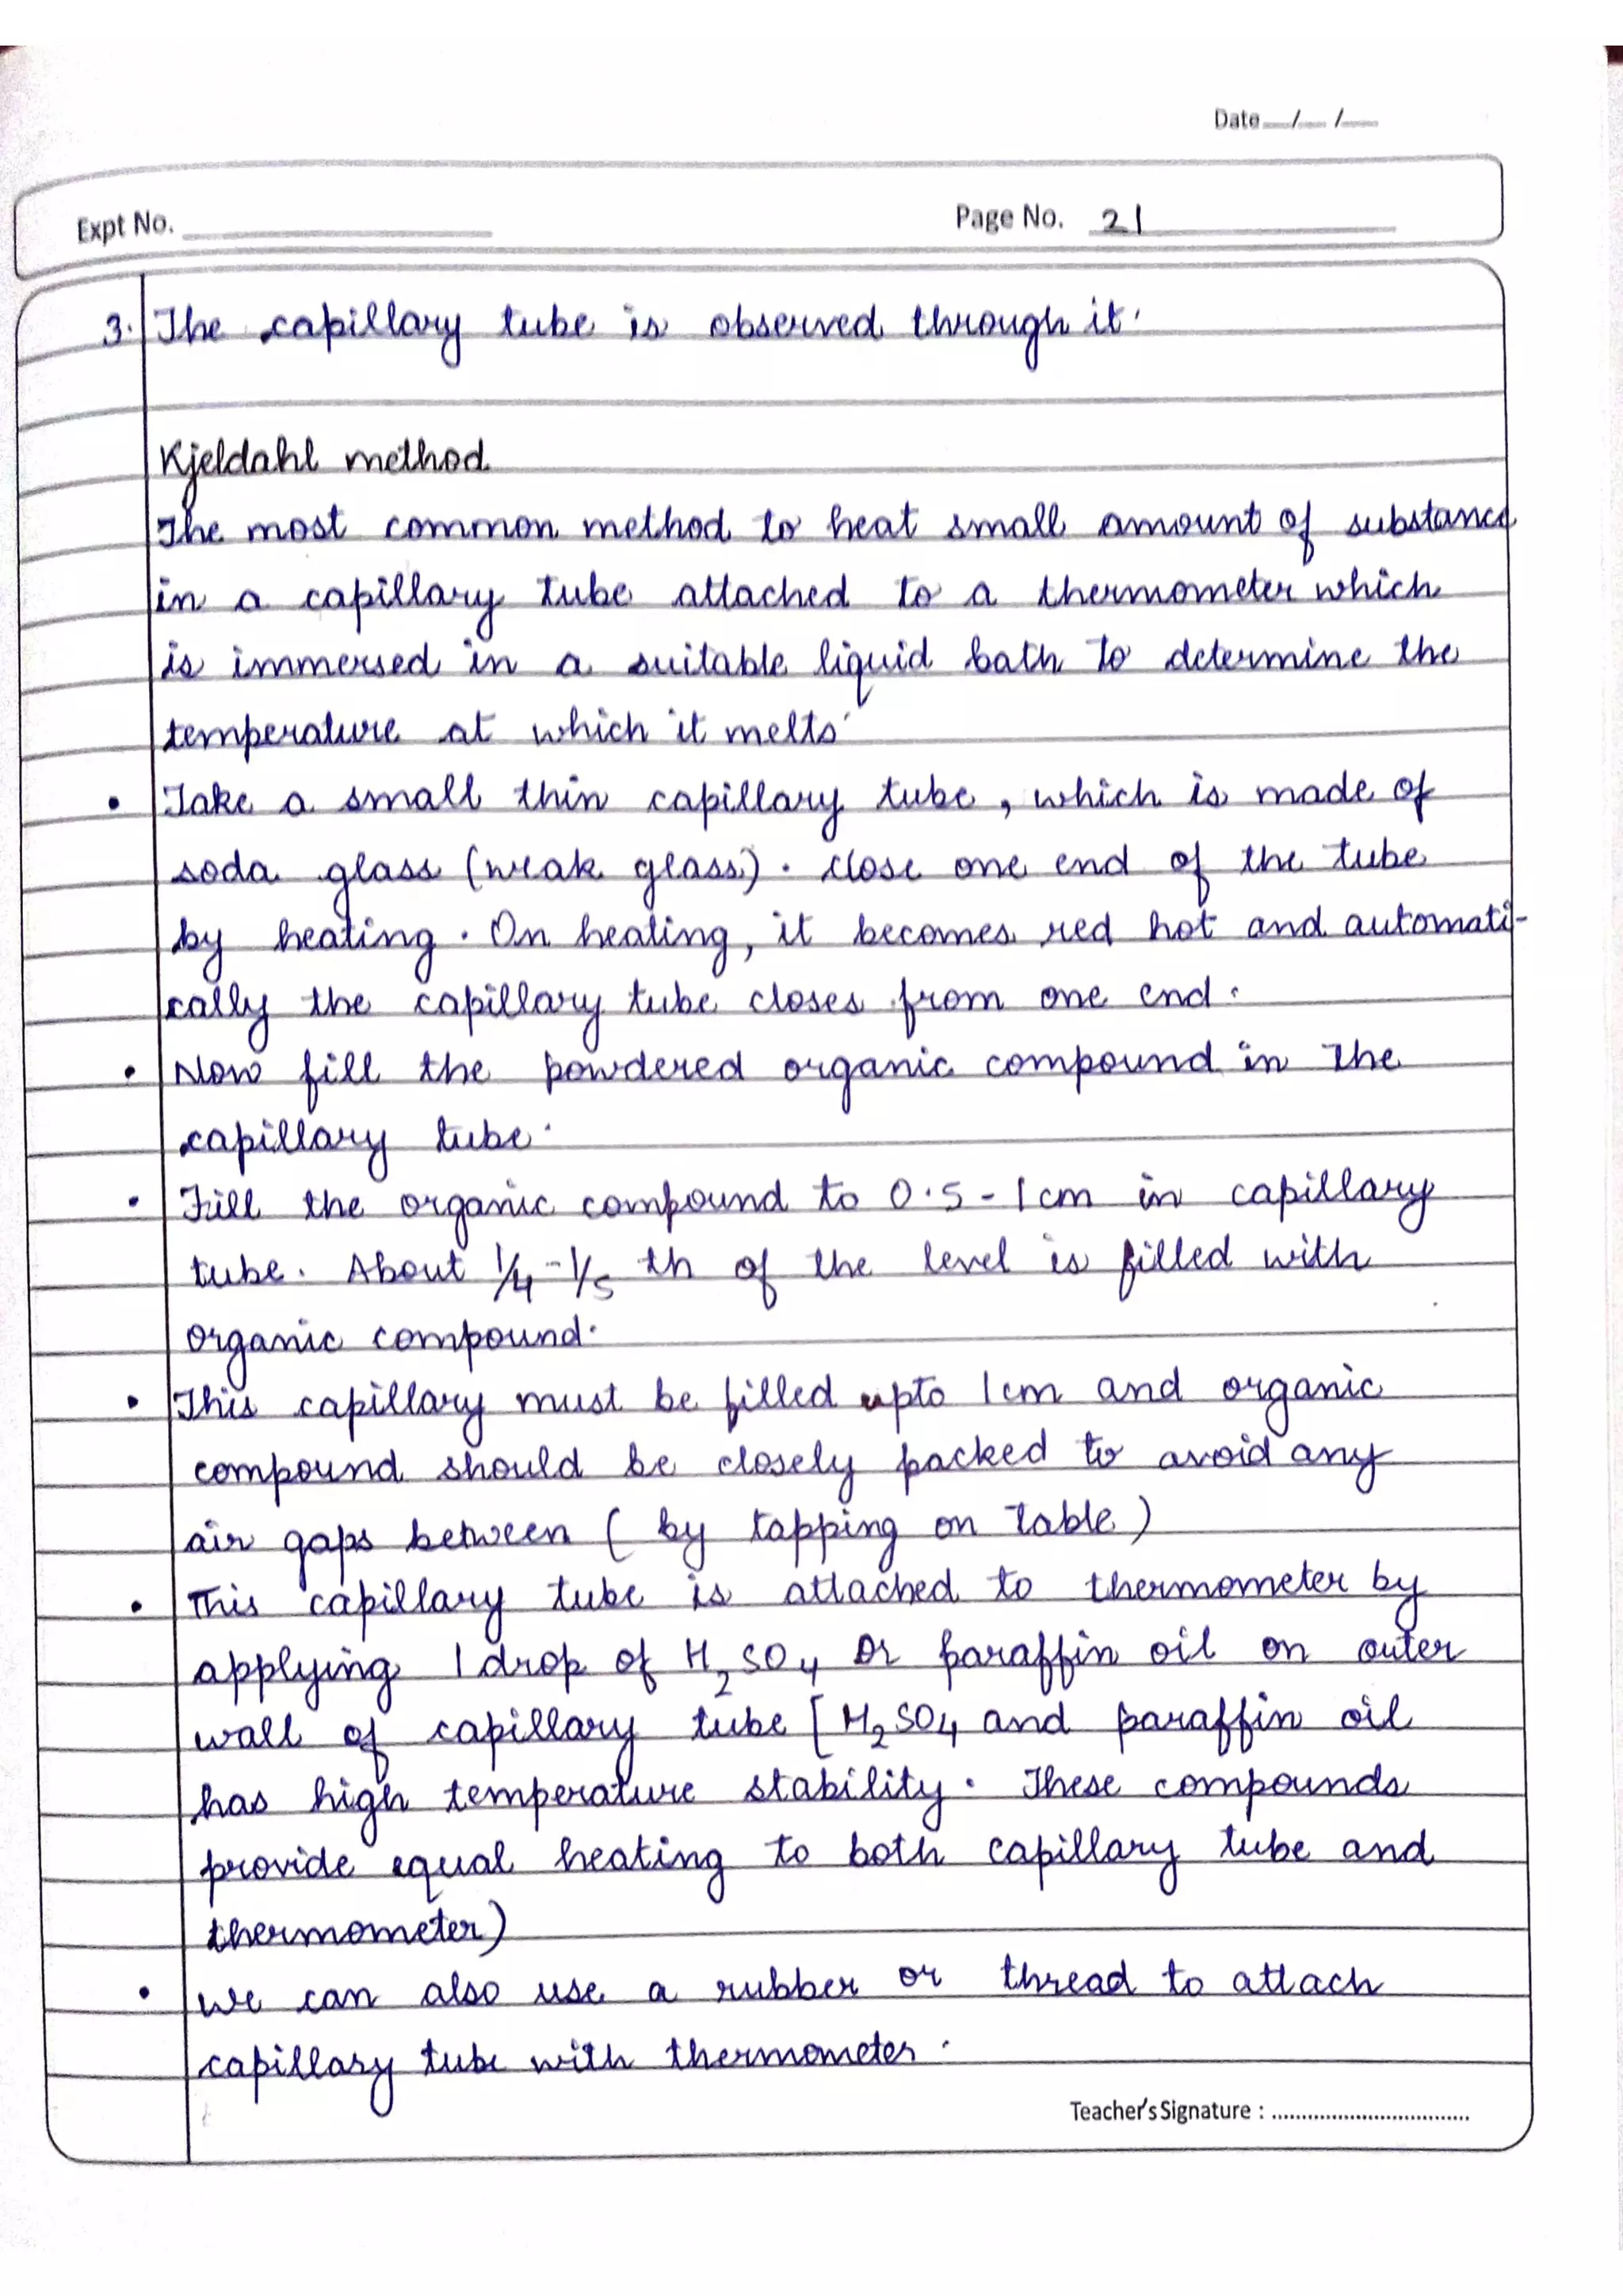 Date__/__/__
Expt No. Page No. 21
3. The capillary tube is observed through it.
Kjeldahl method
The most common method to heat small amount of substance
in a capillary tube attached to a thermometer which
is immersed in a suitable liquid bath to determine the
temperature at which it melts.
• Take a small thin capillary tube, which is made of
soda glass (weak glass). Close one end of the tube
by heating. On heating, it becomes red hot and automati-
cally the capillary tube closes from one end.
• Now fill the powdered organic compound in the
capillary tube.
• Fill the organic compound to 0.5 - 1 cm in capillary
tube. About 1/4 - 1/5 th of the level is filled with
organic compound.
• This capillary must be filled upto 1cm and organic
compound should be closely packed to avoid any
air gaps between ( by tapping on table )
• This capillary tube is attached to thermometer by
applying 1 drop of H₂SO₄ or paraffin oil on outer
wall of capillary tube [ H₂SO₄ and paraffin oil
has high temperature stability. These compounds
provide equal heating to both capillary tube and
thermometer)
• We can also use a rubber or thread to attach
capillary tube with thermometer.
Teacher's Signature : .................................